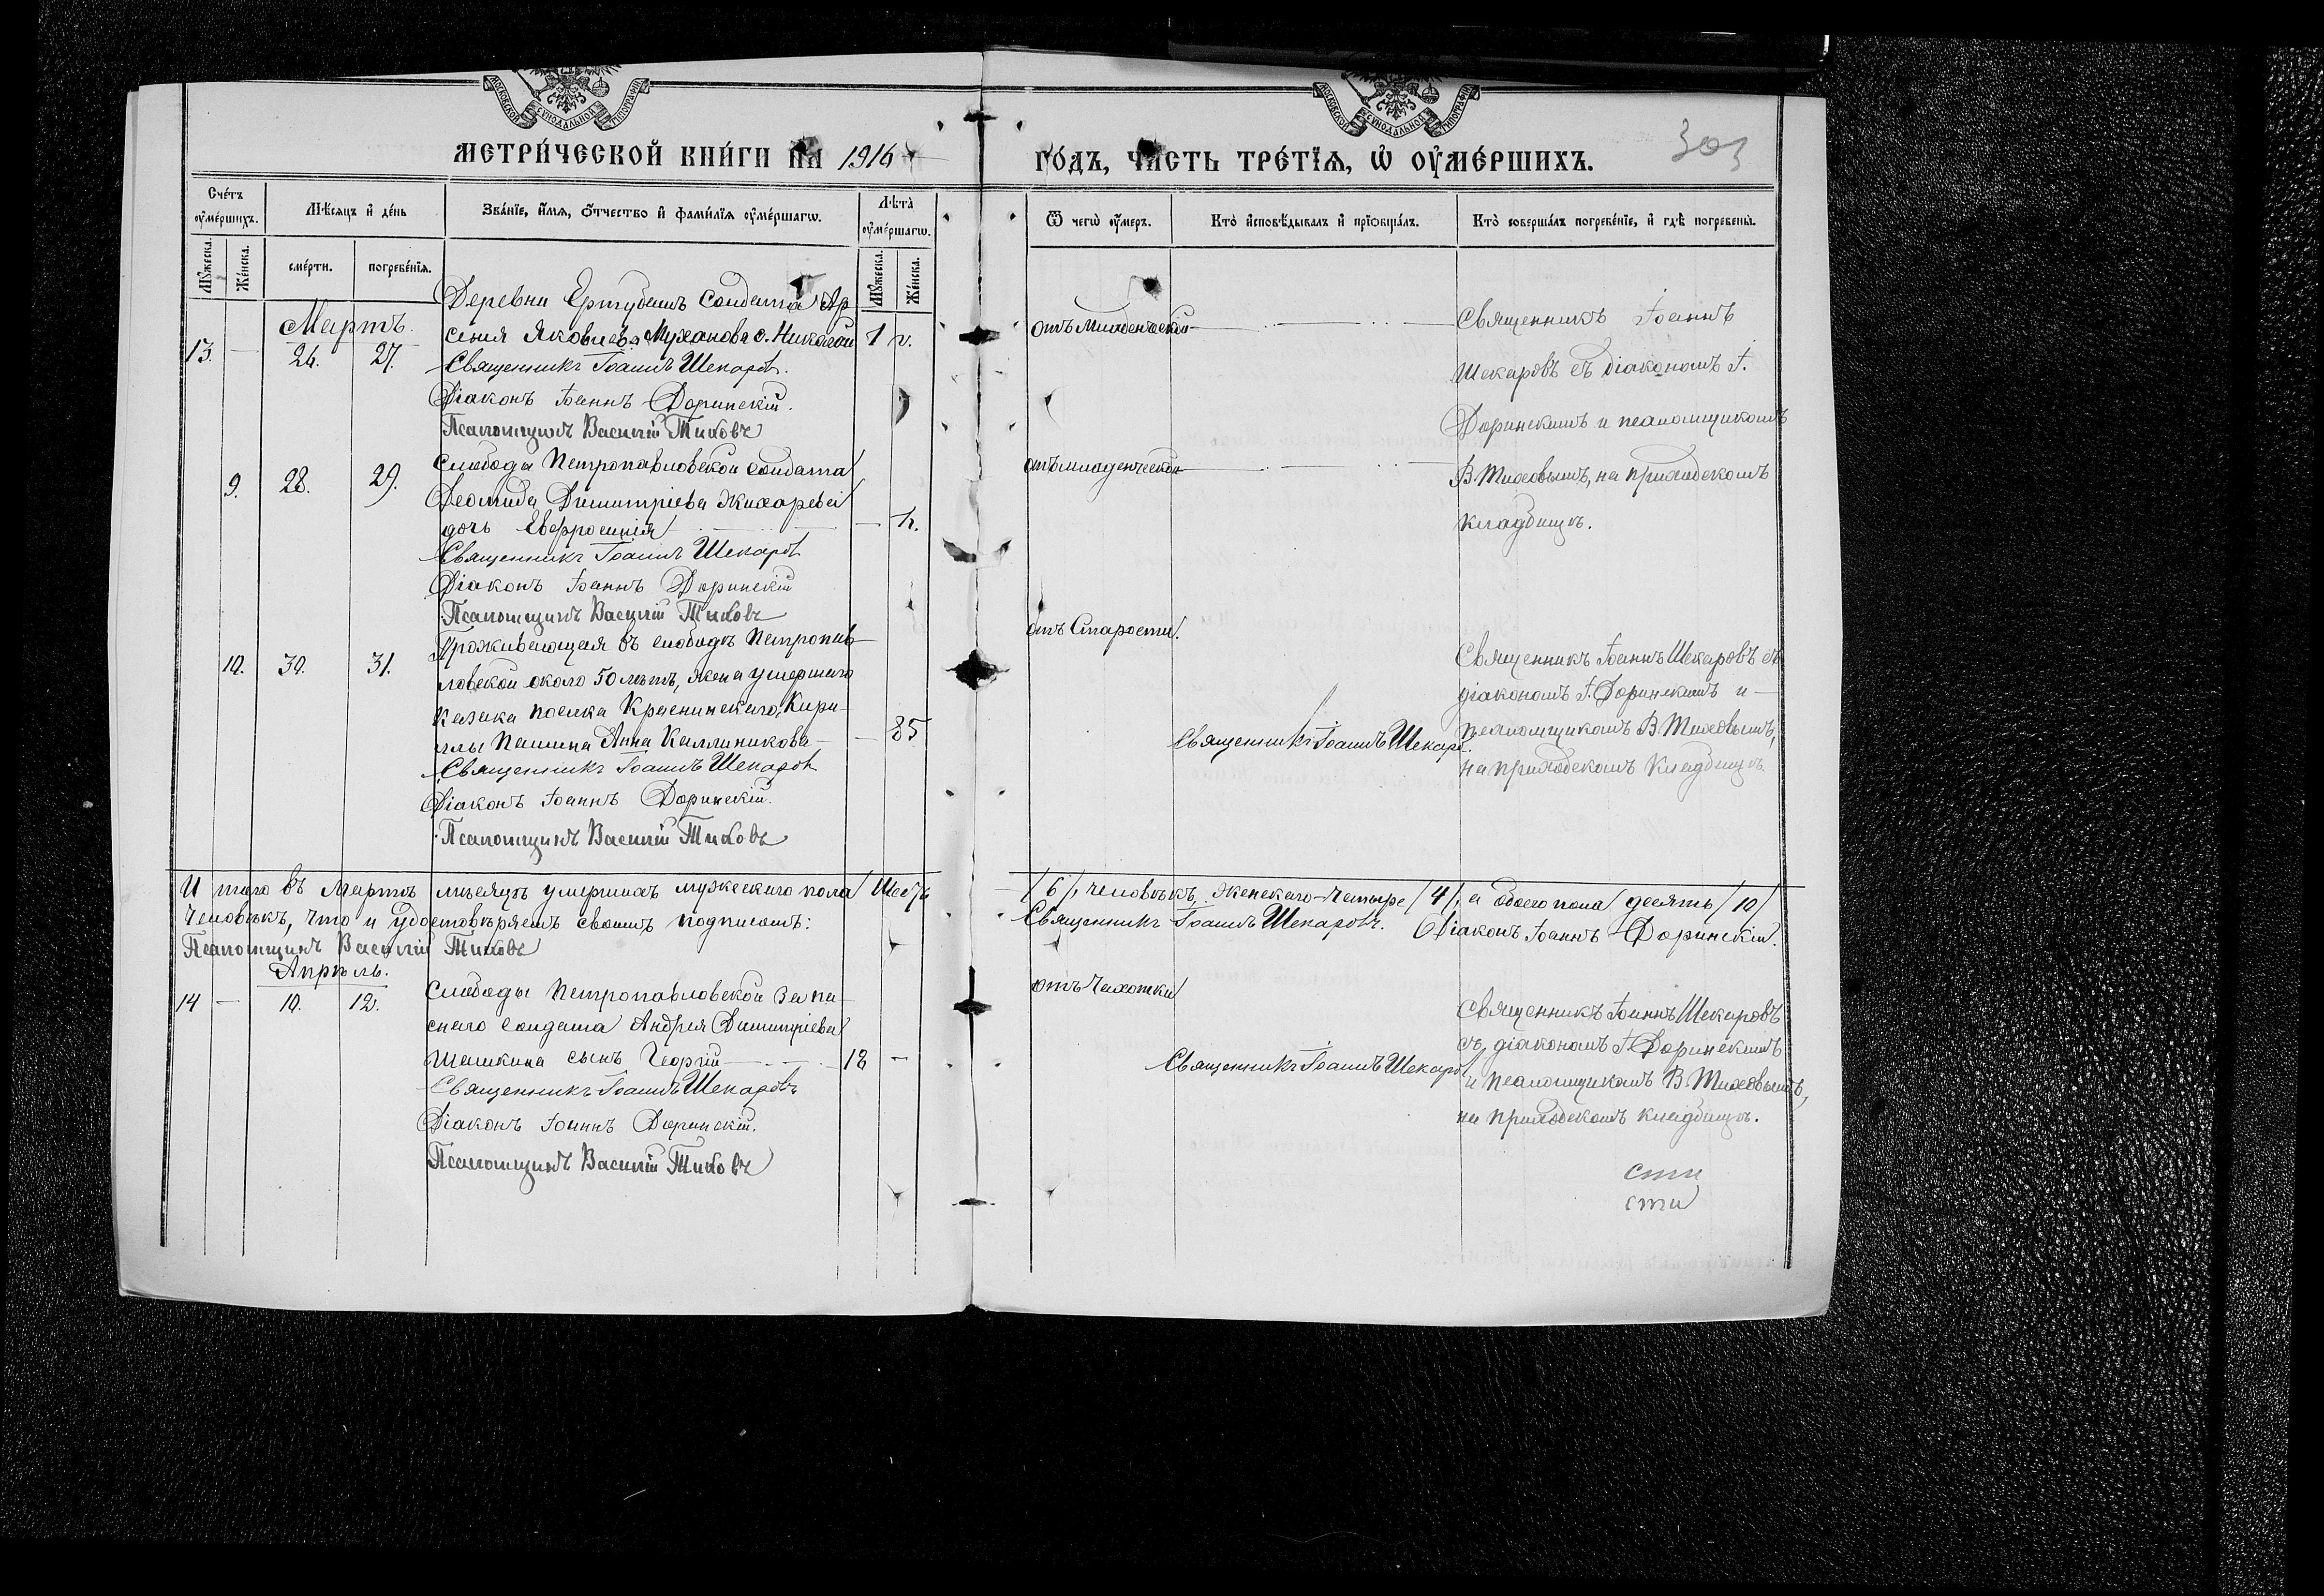 МОСКОВСКОЙ СѴНОДАЛЬНОЙ ТИПОГРАФІИ
МОСКОВСКОЙ СѴНОДАЛЬНОЙ ТИПОГРАФІИ
МЕТРИ́ЧЕСКОЙ КНИ́ГИ НА 1916
ГО́ДЪ, ЧАСТЬ ТРЕ́ТІѦ, Ѽ ОУ҆МЕ́РШИХЪ.
303
Сче́тъ оу҆ме́ршихъ.
Мѣ́сяцъ и҆ де́нь
Зва́нїе, и҆́мѧ, ѻ҆́тчество и҆ фами́лїѧ оу҆ме́ршагѡ.
Лѣта̀ оу҆ме́ршагѡ.
Ѿ чегѡ̀ оу҆́меръ.
Кто̀ и҆сповѣ́дывалъ и҆ прїѻбща́лъ.
Кто̀ соверша́лъ погребе́нїе, и҆ гдѣ̀ погребены̀.
Мꙋ́жеска.
Же́нска.
сме́рти.
погребе́нїѧ.
Мꙋ́жеска.
Же́нска.
Деревни Ертубашъ солдата Ар
Мартъ.
сения Яковлева Муханова с. Николай
13. — 26. 27. 1 г.
Священникъ Іоаннъ Шекаровъ.
Діаконъ Іоаннъ Доринскій.
Псаломщикъ Василій Тиховъ
отъ Младенческой
Священникъ Іоаннъ
Шекаровъ съ діакономъ І.
Доринскимъ и псаломщикомъ
В. Тиховымъ, на приходскомъ
кладбищѣ.
Слободы Петропавловской солдата
9. 28. 29.
Леонида Димитріева Жихарева
дочь Евфросинія —
Священникъ Іоаннъ Шекаровъ
Діаконъ Іоаннъ Доринскій
Псаломщикъ Василій Тиховъ
отъ младенческой
Проживающая въ слободѣ Петропав
10. 30. 31.
ловской около 50 лѣтъ, жена умершаго
казака поселка Краснинскаго, Кири-
ллы Пашина Анна Каллиникова — 85
Священникъ Іоаннъ Шекаровъ
Діаконъ Іоаннъ Доринскій.
Псаломщикъ Василій Тиховъ
отъ Старости.
Священникъ Іоаннъ Шекаровъ.
Священникъ Іоаннъ Шекаровъ съ
діакономъ І. Доринскимъ и —
псаломщикомъ В. Тиховымъ,
на приходскомъ кладбищѣ
И того въ Мартѣ мѣсяцѣ умершихъ мужескаго пола Шесть /6/, человѣкъ, женскаго — четыре /4/, а обоего пола десять /10/
человѣкъ, что и удостовѣряемъ своимъ подписомъ: Священникъ Іоаннъ Шекаровъ. Діаконъ Іоаннъ Доринскій.
Псаломщикъ Василій Тиховъ
Апрѣль.
14 — 10. 12.
Слободы Петропавловской Запа-
снаго солдата Андрея Димитріева
Шашкина сынъ Георгій — 18 —
Священникъ Іоаннъ Шекаровъ
Діаконъ Іоаннъ Доринскій.
Псаломщикъ Василій Тиховъ
отъ Чахотки
Священникъ Іоаннъ Шекаровъ
Священникъ Іоаннъ Шекаровъ
съ діакономъ І. Доринскимъ
и псаломщикомъ В. Тиховымъ,
на приходскомъ кладбищѣ.
сти
сти